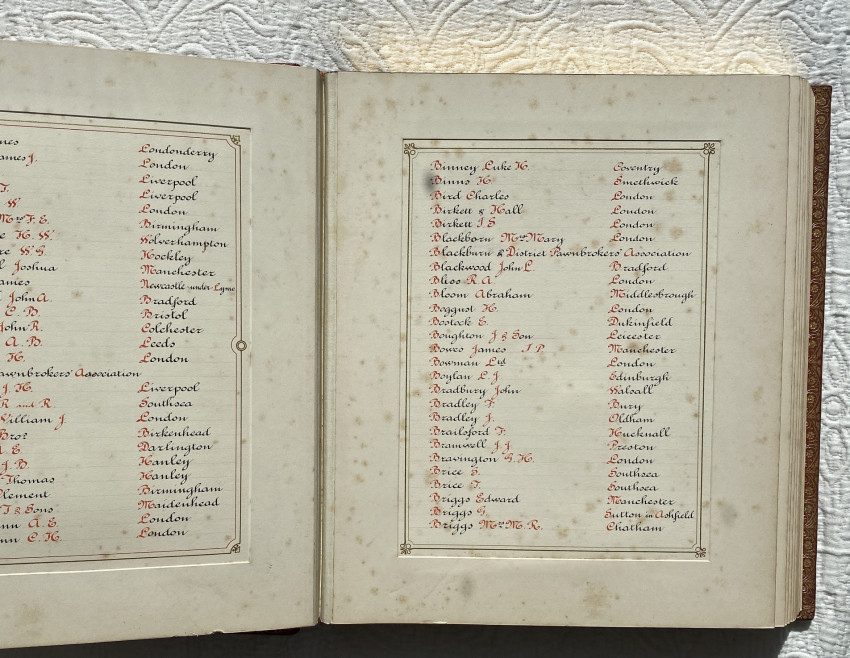 mes Londonderry
ames J. London
Liverpool
T. Liverpool
W London
Mrs F. E. Birmingham
e H. W. Wolverhampton
re W. G. Hockley
l Joshua Manchester
ames Newcastle-under-Lyme
John A. Bradford
E. B. Bristol
John R. Colchester
A. B. Leeds
H. London
awnbrokers' Association
J. H. Liverpool
R and R. Southsea
William J. London
Bros Birkenhead
E. Darlington
J. B. Hanley
Thomas Hanley
Clement Birmingham
T & Sons Maidenhead
nn A. E. London
nn C. H. London
Binney Luke H. Coventry
Binns H. Smethwick
Bird Charles London
Birkett & Hall London
Birkett J. S London
Blackborn Mrs Mary London
Blackburn & District Pawnbrokers' Association
Blackwood John L. Bradford
Bliss R. A. London
Bloom Abraham Middlesbrough
Boggust H. London
Bostock E. Dukinfield
Boughton J & Son Leicester
Bowes James J.P. Manchester
Bowman Ltd London
Boylan L. J Edinburgh
Bradbury John Walsall
Bradley F. Bury
Bradley J. Oldham
Brailsford F. Hucknall
Bramwell J. J Preston
Bravington G. H. London
Brice S. Southsea
Brice F. Southsea
Briggs Edward Manchester
Briggs G. Sutton in Ashfield
Briggs Mrs M. R. Chatham